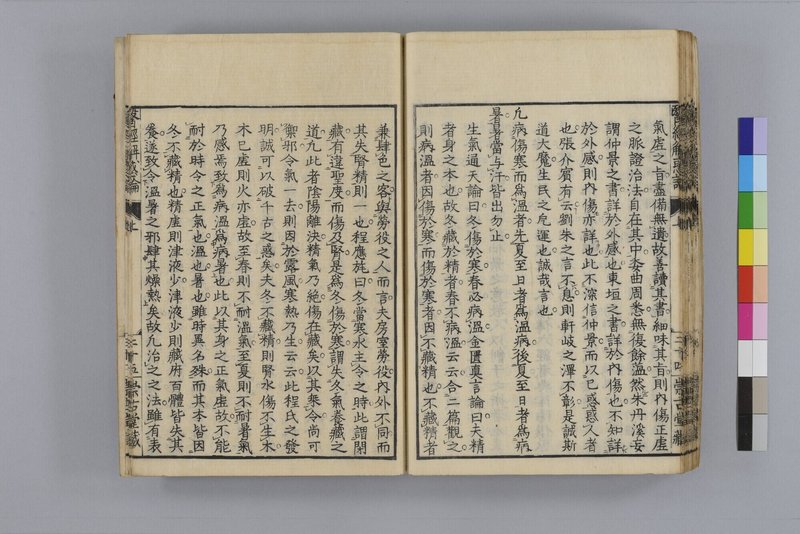 氣虛之旨盡備無遺故善讀其書細味其旨則內傷正虛
之脈證治法自在其中委曲周悉無復餘溫然朱丹溪妄
謂仲景之書詳於外感也東垣之書詳於內傷也不知詳
於外感則內傷亦詳也此不深信仲景而以已惑惑人者
也張介賓有云劉朱之言不息則軒岐之澤不彰是誠斯
道大魔生民之危運也誠哉言也
凡病傷寒而為溫者先夏至日者為病溫後夏至日者為病
暑暑當与汗皆出勿止
生氣通天論曰冬傷於寒春必病溫金匱真言論曰夫精
者身之本也故冬藏於精者春不病溫云云合二篇觀之
則病溫者因傷於寒而傷於寒者因不藏精也不藏精者
兼肆色之客與勞役之人而言夫房室勞役內外不同而
其失腎精則一也程應旄曰冬當寒水主令之時此謂閉
藏有違聖度而傷及腎是為冬傷於寒謂失冬氣養藏之
道九此者陰陽離決精氣乃絕傷在藏矣以其築令尚可
禦邪令氣一去則因於露風寒熱乃生云云此程氏之發
明誠可以破千古之惑矣夫冬不藏精則腎水傷不生木
木已虛則火亦虛故至春則不耐溫氣至夏則不耐暑氣
乃感焉致為病溫為病暑也此以其身之正氣虛故不能
耐於時令之正氣也溫也暑也雖時異名殊而其本皆因
冬不藏精也精虛則津液少津液少則藏府百體皆失其
養遂致令溫暑之邪肆其燥熱矣故凡治之之法雖有表